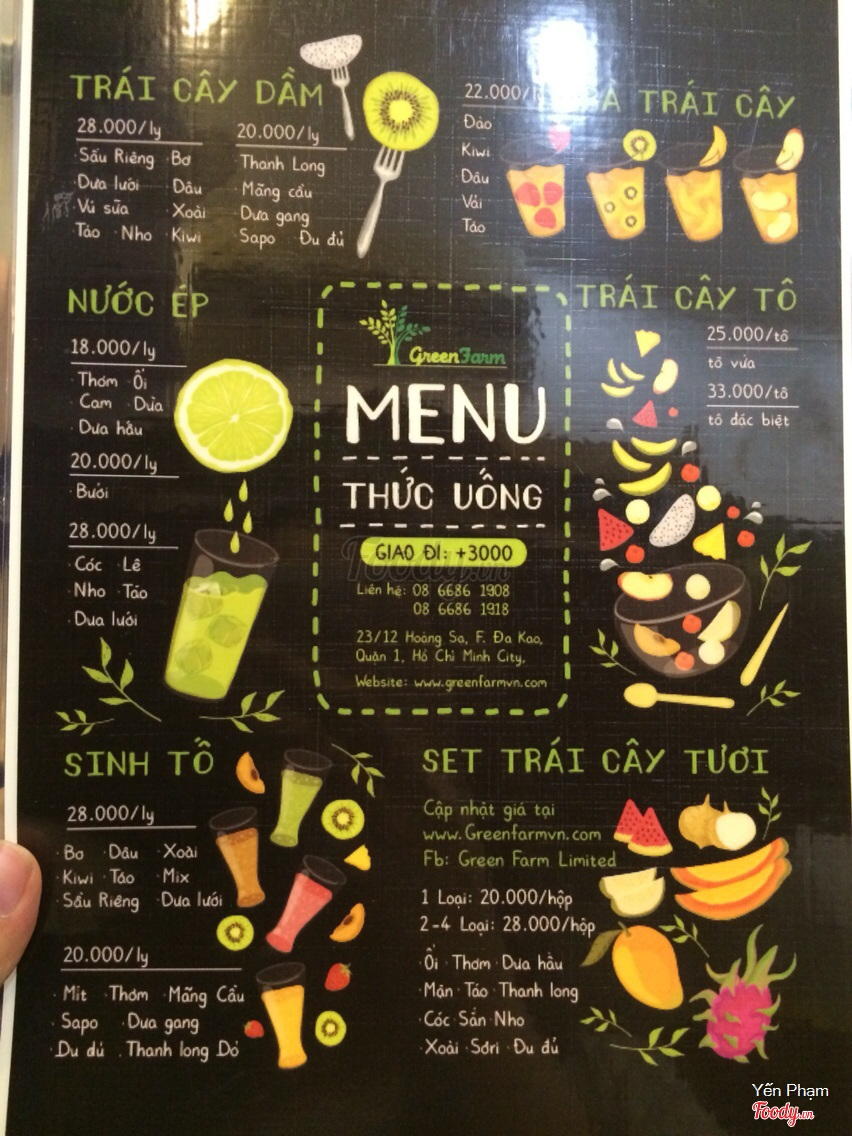 TRÁI CÂY DẦM
28.000/ly
· Sầu Riêng · Bơ
· Dưa lưới · Dâu
· Vú sữa · Xoài
· Táo · Nho · Kiwi
20.000/ly
· Thanh Long
· Mãng cầu
· Dưa gang
· Sapo · Đu đủ
TRÁI CÂY
22.000/
Đào
Kiwi
Dâu
Vải
Táo
NƯỚC ÉP
18.000/ly
· Thơm · Ổi
· Cam · Dừa
· Dưa hấu
20.000/ly
· Bưởi
28.000/ly
· Cóc · Lê
· Nho · Táo
· Dua lưới
GreenFarm
MENU
THỨC UỐNG
GIAO ĐI: +3000
Liên hệ: 08 6686 1908
08 6686 1918
23/12 Hoàng Sa, F. Đa Kao,
Quận 1, Hồ Chí Minh City.
Website: www.greenfarmvn.com
TRÁI CÂY TÔ
25.000/tô
tô vừa
33.000/tô
tô đác biệt
SINH TỐ
28.000/ly
· Bơ · Dâu · Xoài
· Kiwi · Táo · Mix
· Sầu Riêng · Dưa lưới
20.000/ly
· Mít · Thơm · Mãng Cầu
· Sapo · Dưa gang
· Đu đủ · Thanh long Đỏ
SET TRÁI CÂY TƯƠI
Cập nhật giá tại
www.Greenfarmvn.com
Fb: Green Farm Limited
1 Loại: 20.000/hộp
2-4 Loại: 28.000/hộp
· Ổi · Thơm · Dưa hầu
· Mận · Táo · Thanh long
· Cóc · Sắn · Nho
· Xoài · Sơri · Đu đủ
Foody.vn
Yến Phạm
Foody.vn